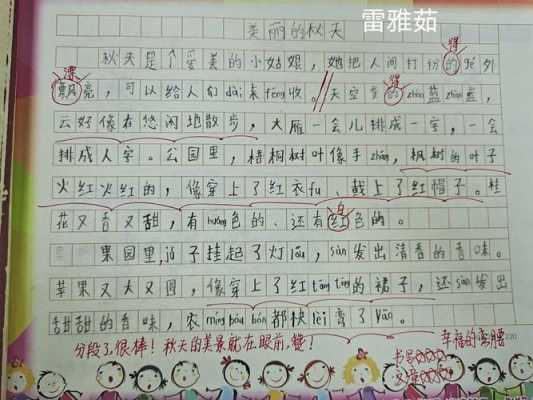 雷雅茹
美丽的秋天
得
秋天是个爱美的小姑娘,她把人间打扮的格外
漂 得
飘亮,可以给人们dài来fēng收。//天空变的zhàn蓝zhàn蓝,
云好像在悠闲地散步,大雁一会儿排成一字,一会
排成人字。公园里,梧桐树叶像手zhǎng,枫树的叶子
火红火红的,像穿上了红衣fu、戴上了红帽子。桂
花又香又甜,有huáng色的、还有红色的。
白
果园里,柿子挂起了灯lóng,sàn发出清香的香味。
苹果又大又圆,像穿上了红tōng tōng的裙子,还sàn发出
甜甜的香味,农mín bái bái都快lèi弯了yāo。
分段了,很棒!秋天的美景就在眼前,赞!
幸福的弯腰
书写